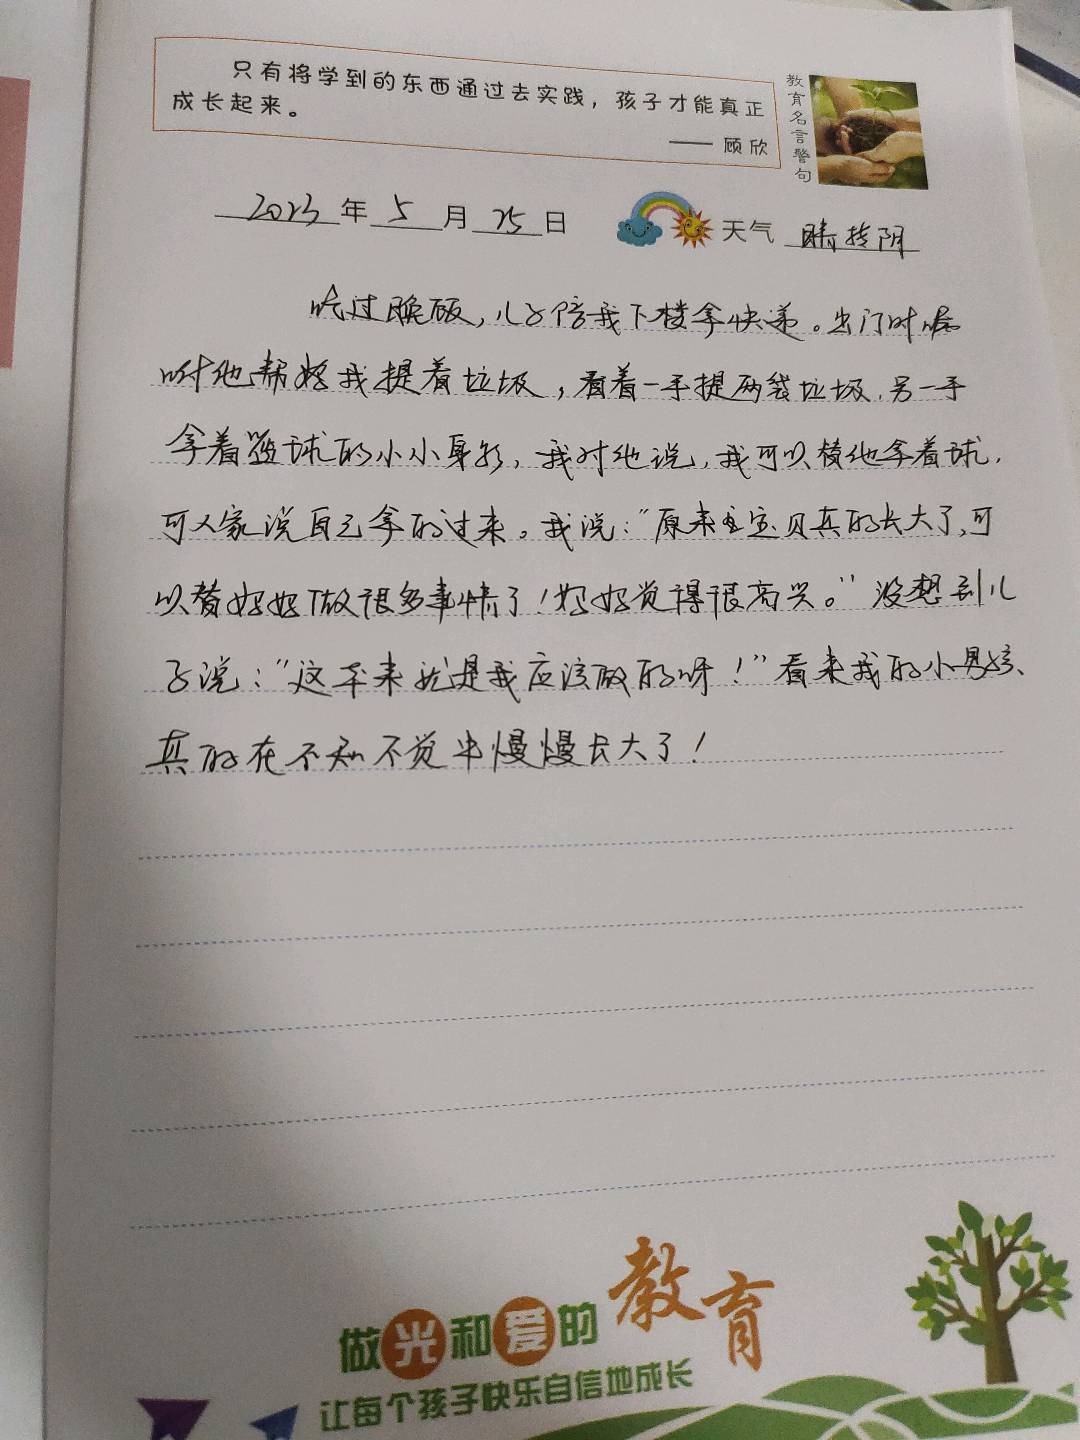 只有将学到的东西通过去实践，孩子才能真正
成长起来。
—— 顾欣
教育名言警句
2023年5月25日 天气 晴转阴
吃过晚饭，儿子陪我下楼拿快递。出门时嘱
咐他帮妈我提着垃圾，看着一手提两袋垃圾，另一手
拿着篮球的小小身影，我对他说，我可以替他拿着球，
可人家说自己拿的过来。我说：“原来宝贝真的长大了，可
以替妈妈做很多事情了！妈妈觉得很高兴。”没想到儿
子说：“这本来就是我应该做的呀！”看来我的小男孩、
真的在不知不觉中慢慢长大了！
做光和爱的教育
让每个孩子快乐自信地成长